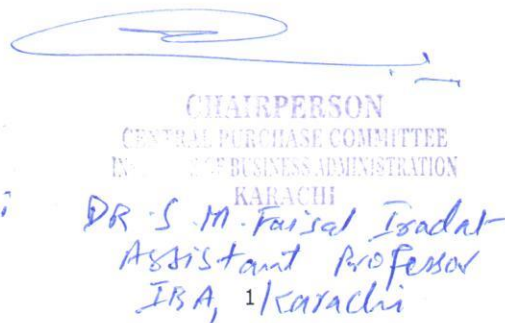 CHAIRPERSON
CENTRAL PURCHASE COMMITTEE
OF BUSINESS ADMINISTRATION
KARACHI
DR. S. M. Faisal Iradat
Assistant Professor
IBA, 1 Karachi